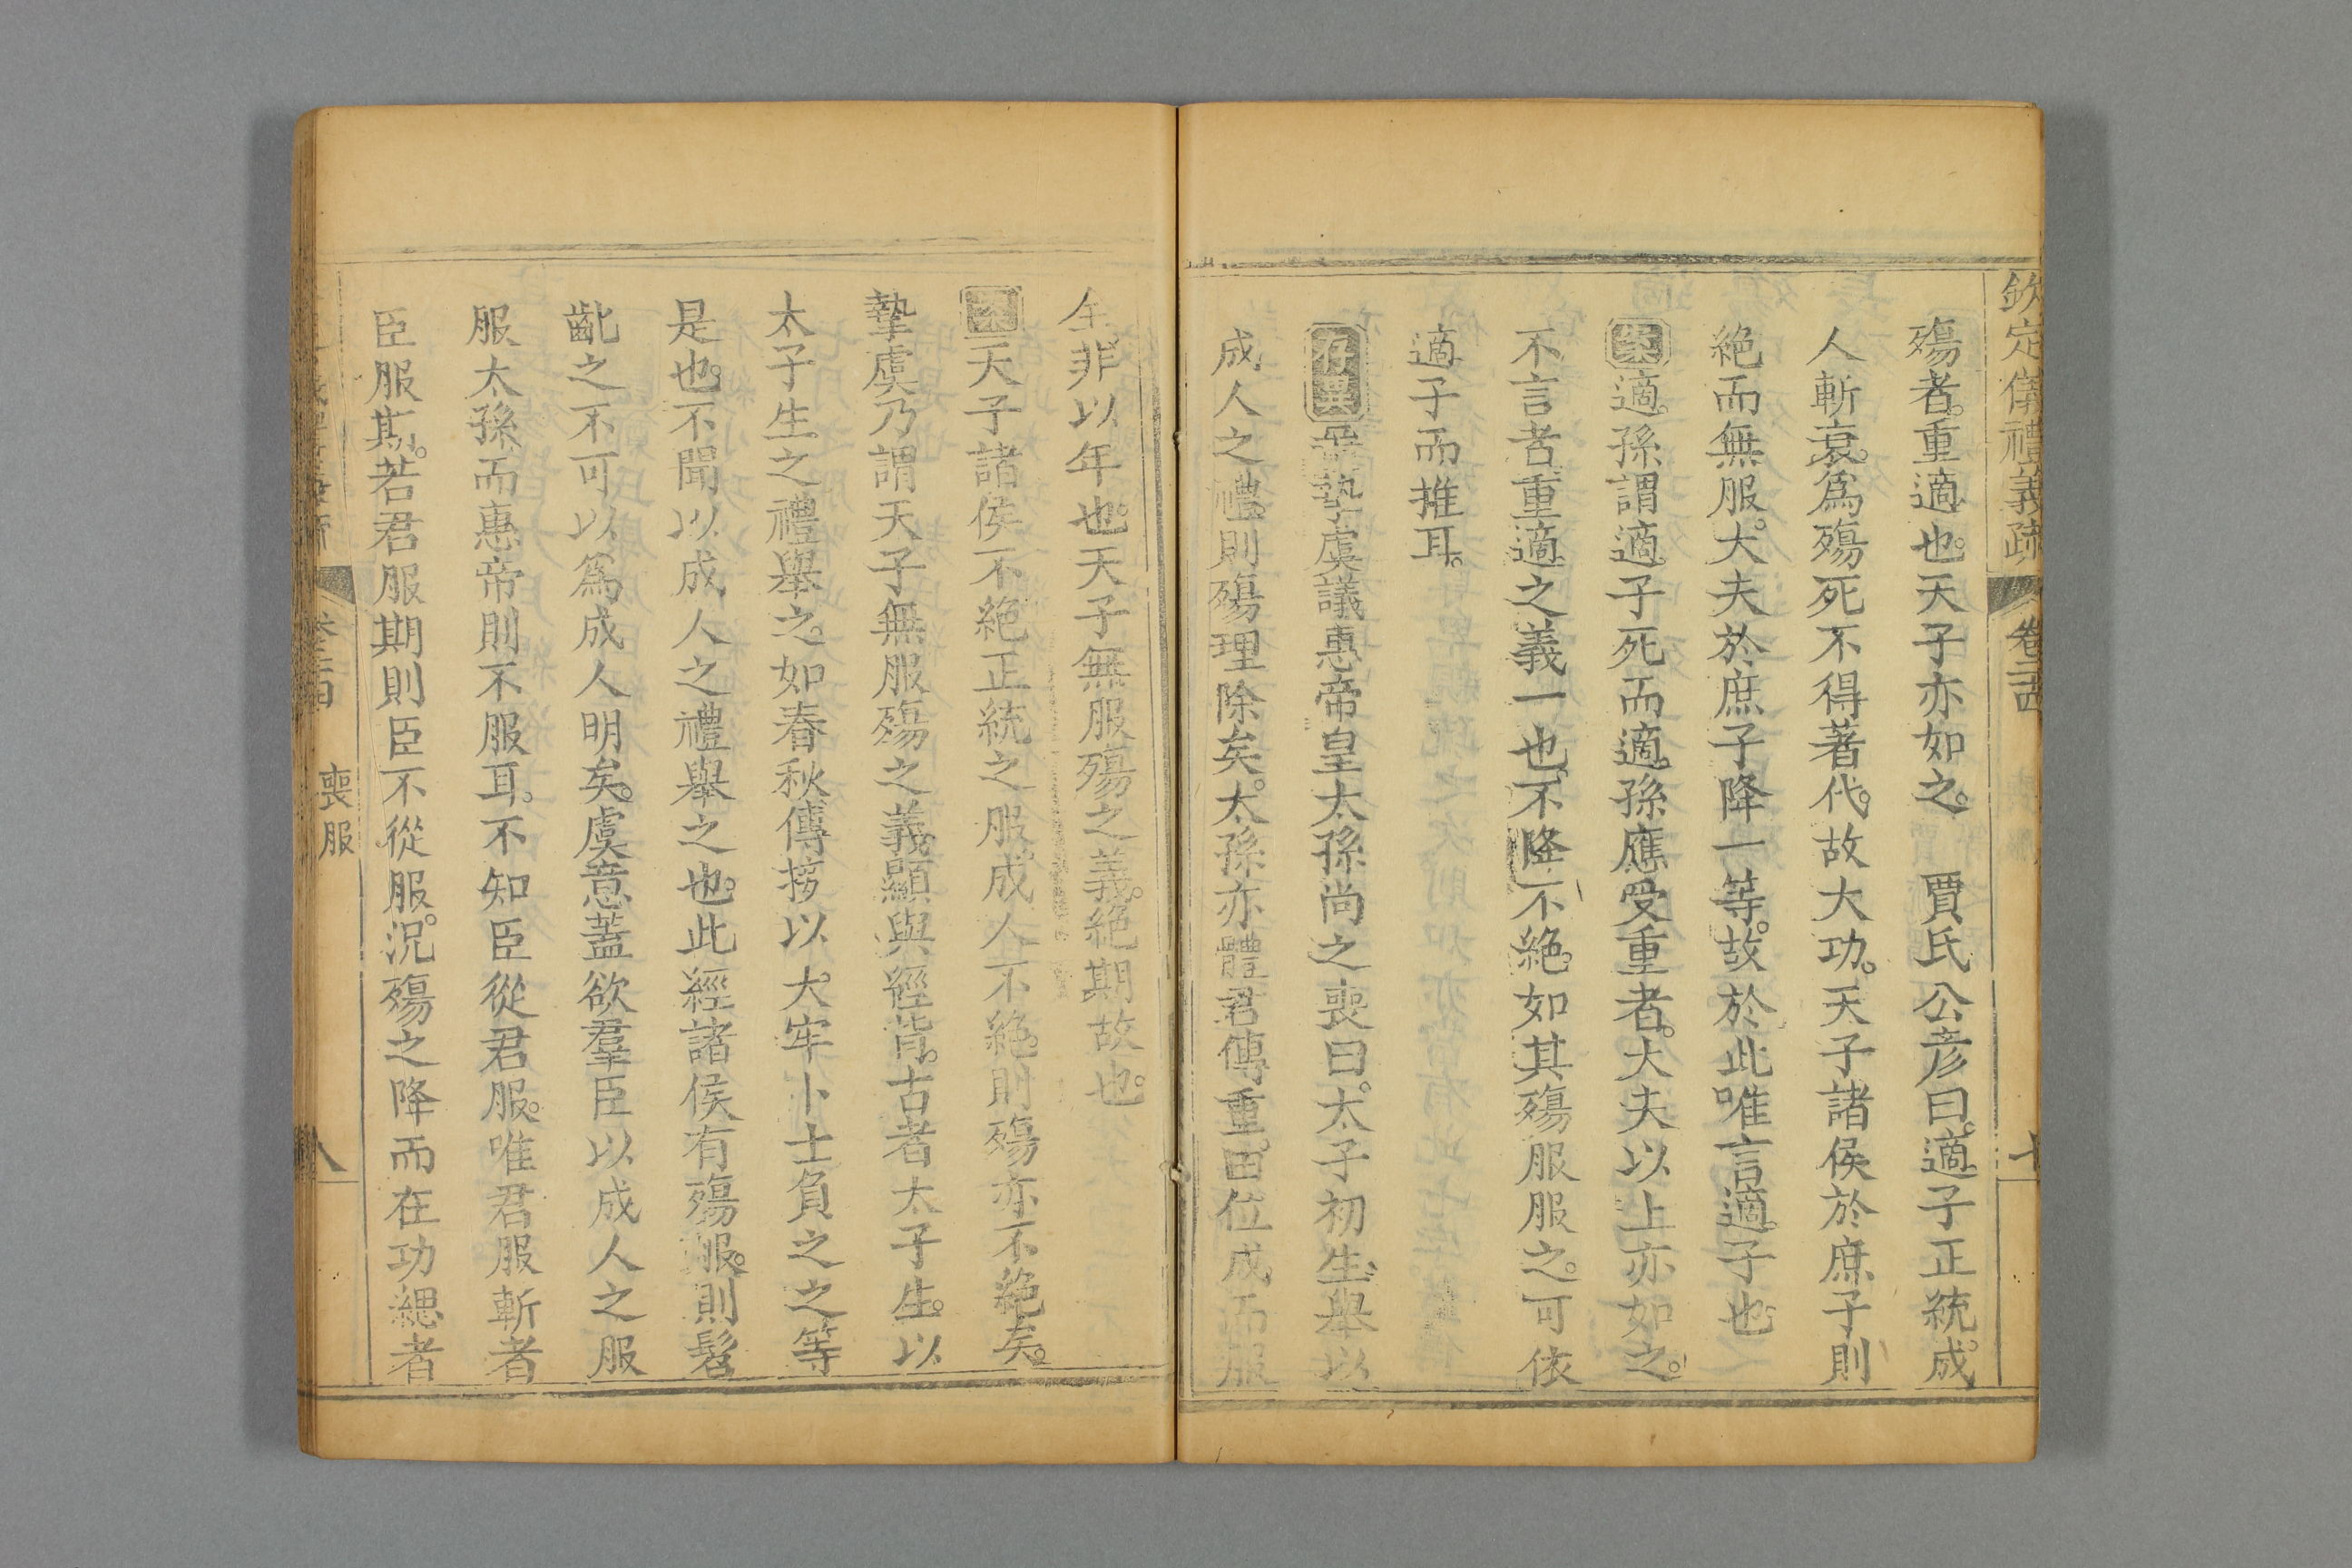 欽定儀禮義疏 卷二十四 七
殤者。重適也。天子亦如之。 賈氏公彥曰。適子正統。成
人斬衰。爲殤死不得著代。故大功。天子諸侯於庶子則
絕而無服。大夫於庶子降一等。故於此唯言適子也
案適孫謂適子死而適孫應受重者。大夫以上亦如之。
不言者。重適之義一也。不降不絕。如其殤服服之。可依
適子而推耳。
存異摯虞議惠帝皇太孫尚之喪曰。太子初生。舉以
成人之禮。則殤理除矣。太孫亦體君傳重。由位成而服
全。非以年也。天子無服殤之義。絕期故也。
案天子諸侯不絕正統之服。成人不絕。則殤亦不絕矣。
摯虞乃謂天子無服殤之義。顯與經背。古者太子生。以
太子生之禮舉之。如春秋傳接以大牢卜士負之之等
是也。不聞以成人之禮舉之也。此經諸侯有殤服。則髫
齔之不可以爲成人明矣。虞意蓋欲羣臣以成人之服
服太孫而惠帝則不服耳。不知臣從君服。唯君服斬者
臣服期。若君服期則臣不從服。況殤之降而在功緦者
卷二十四 喪服 八